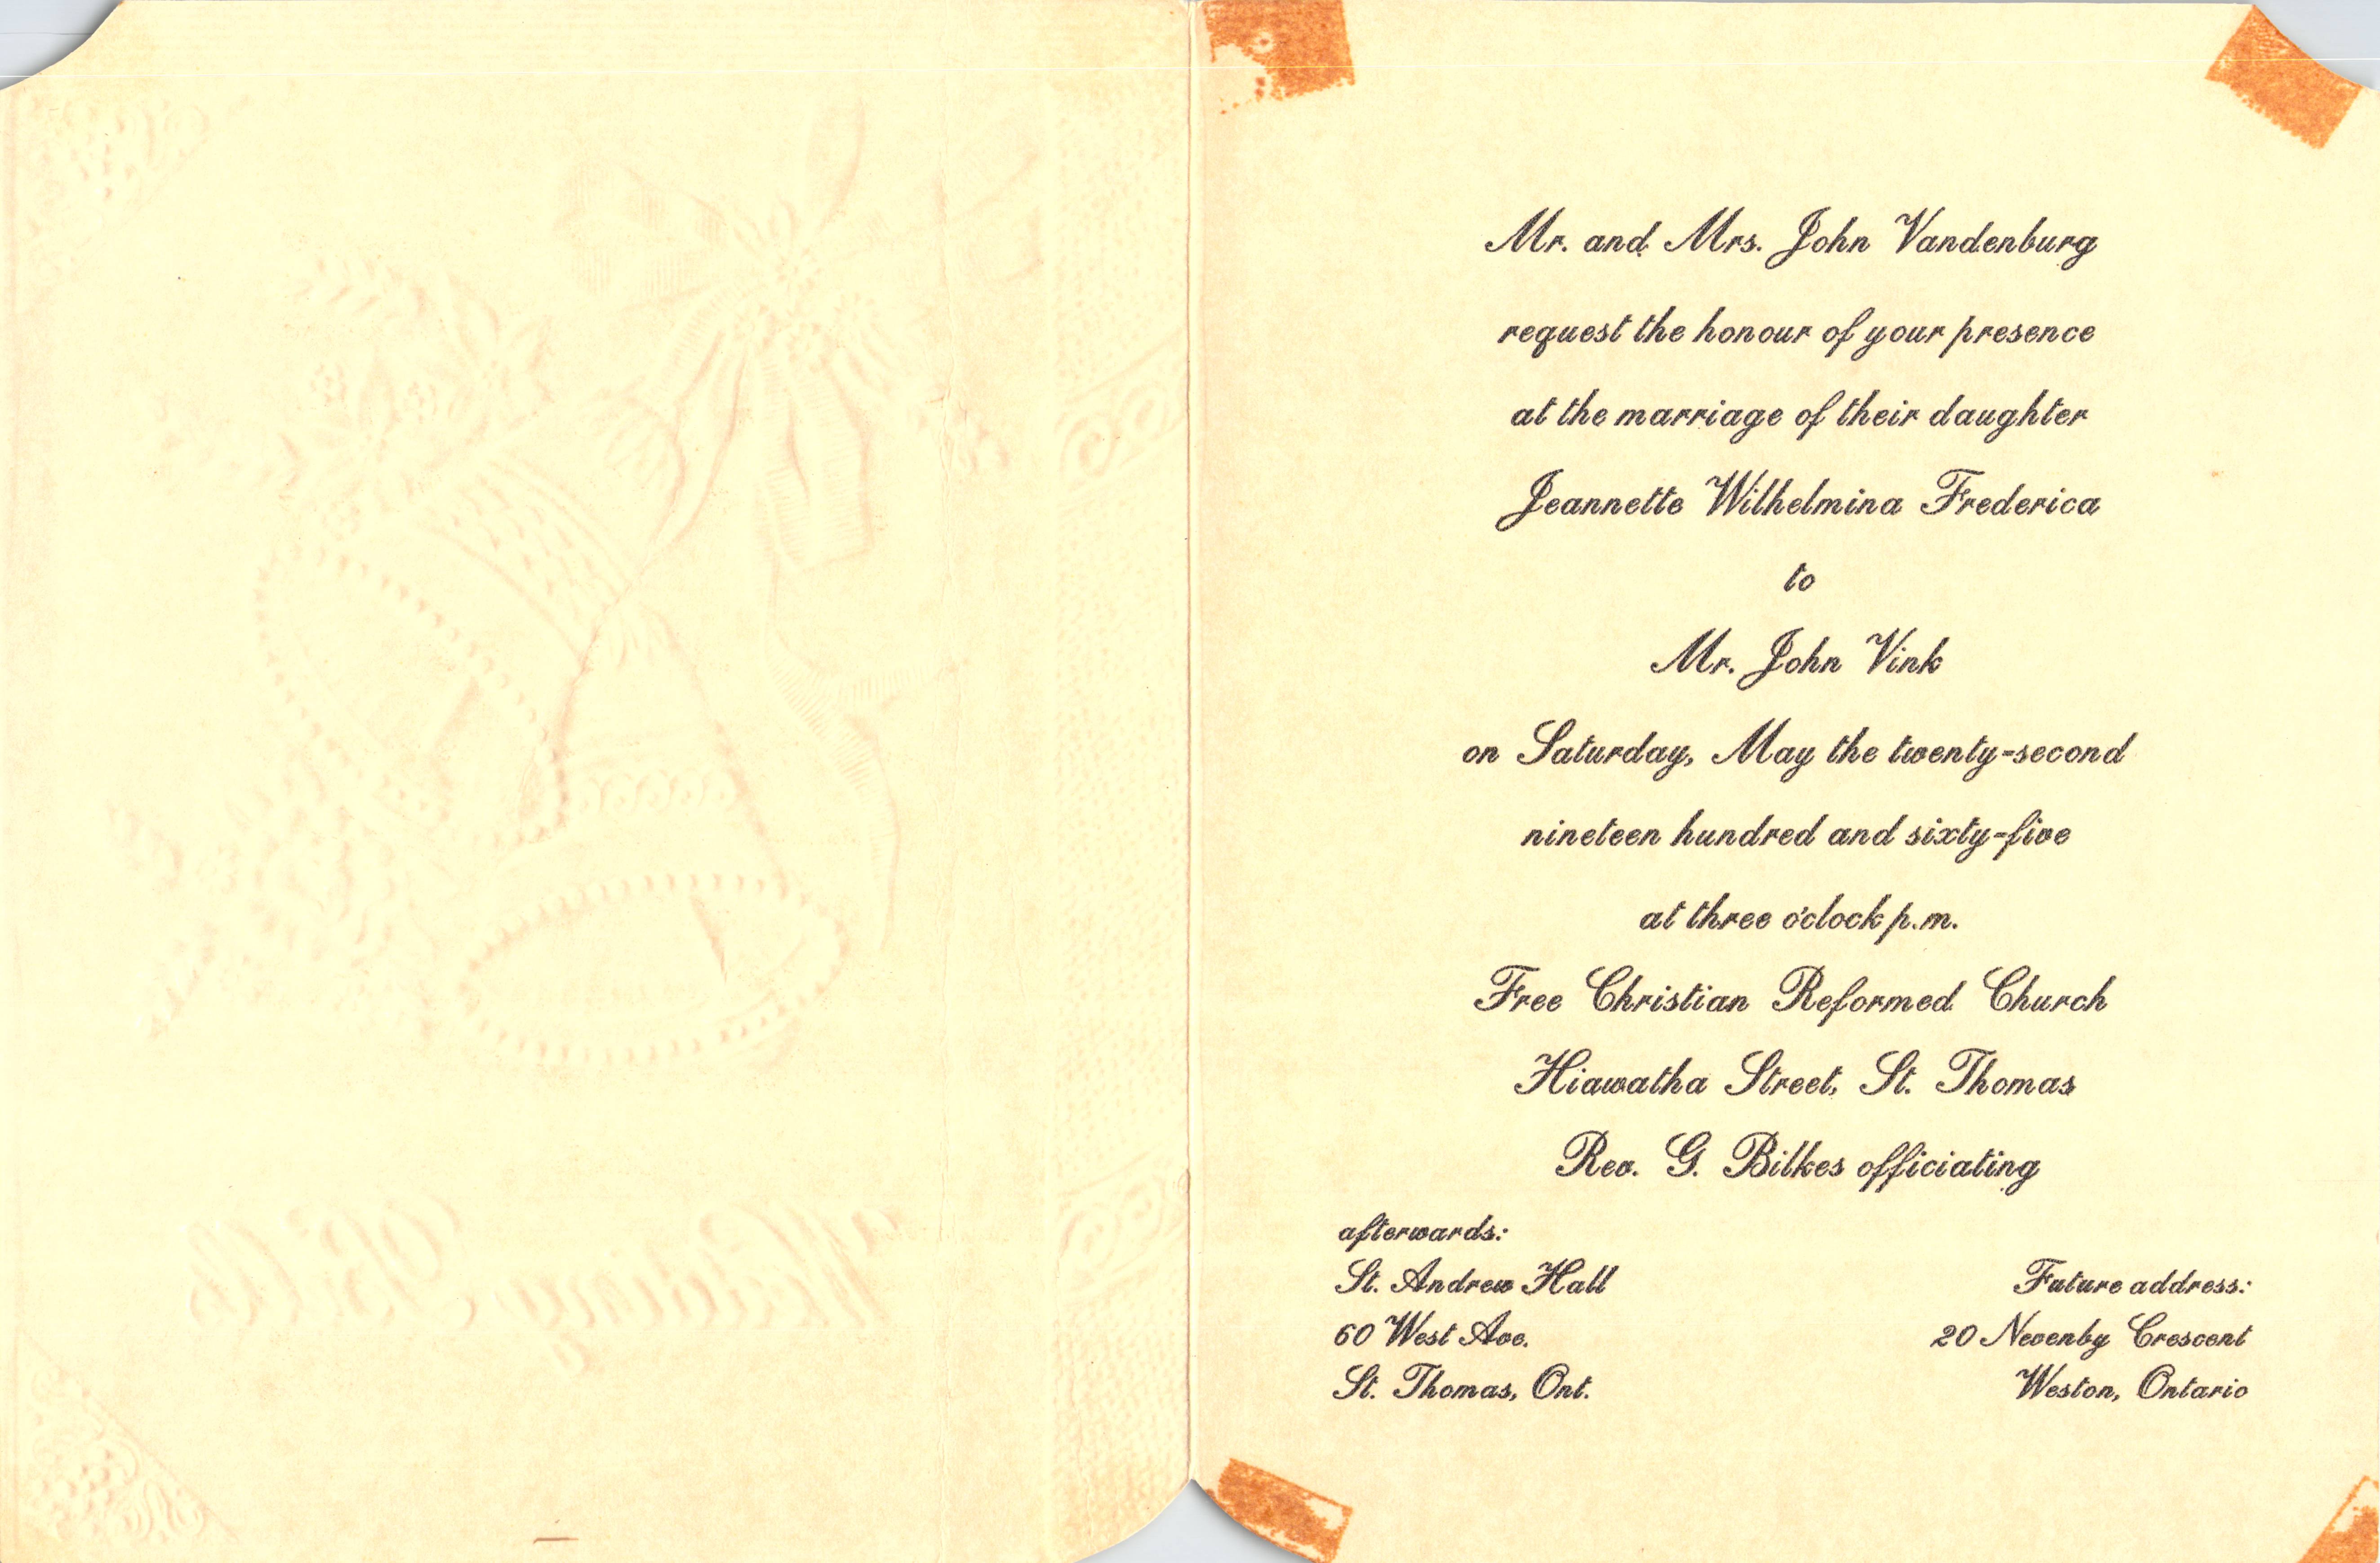 Mr. and Mrs. John Vandenburg
request the honour of your presence
at the marriage of their daughter
Jeannette Wilhelmina Frederica
to
Mr. John Vink
on Saturday, May the twenty-second
nineteen hundred and sixty-five
at three o'clock p.m.
Free Christian Reformed Church
Hiawatha Street, St. Thomas
Rev. G. Bilkes officiating
afterwards:
St. Andrew Hall
60 West Ave.
St. Thomas, Ont.
Future address:
20 Nevenby Crescent
Weston, Ontario
Wedding Bells